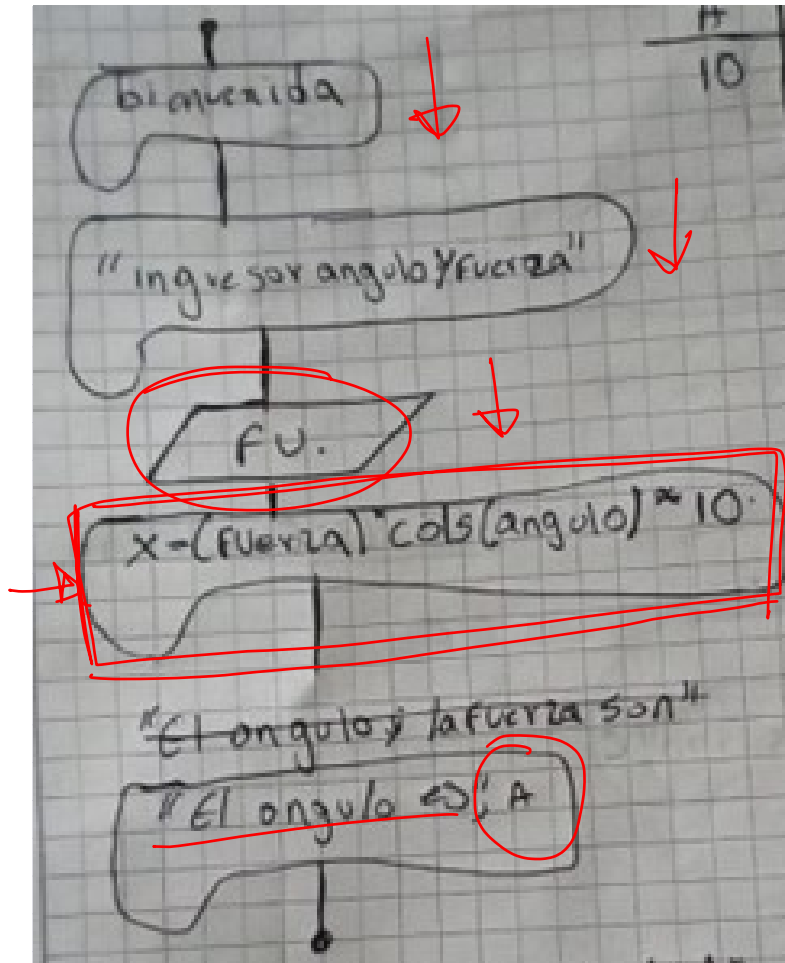 A
10
bienvenida
"ingresar angulo y Fuerza"
FU.
x-(Fuerza)*cols(angulo) * 10.
"El angulo y la fuerza son"
"El angulo es", A